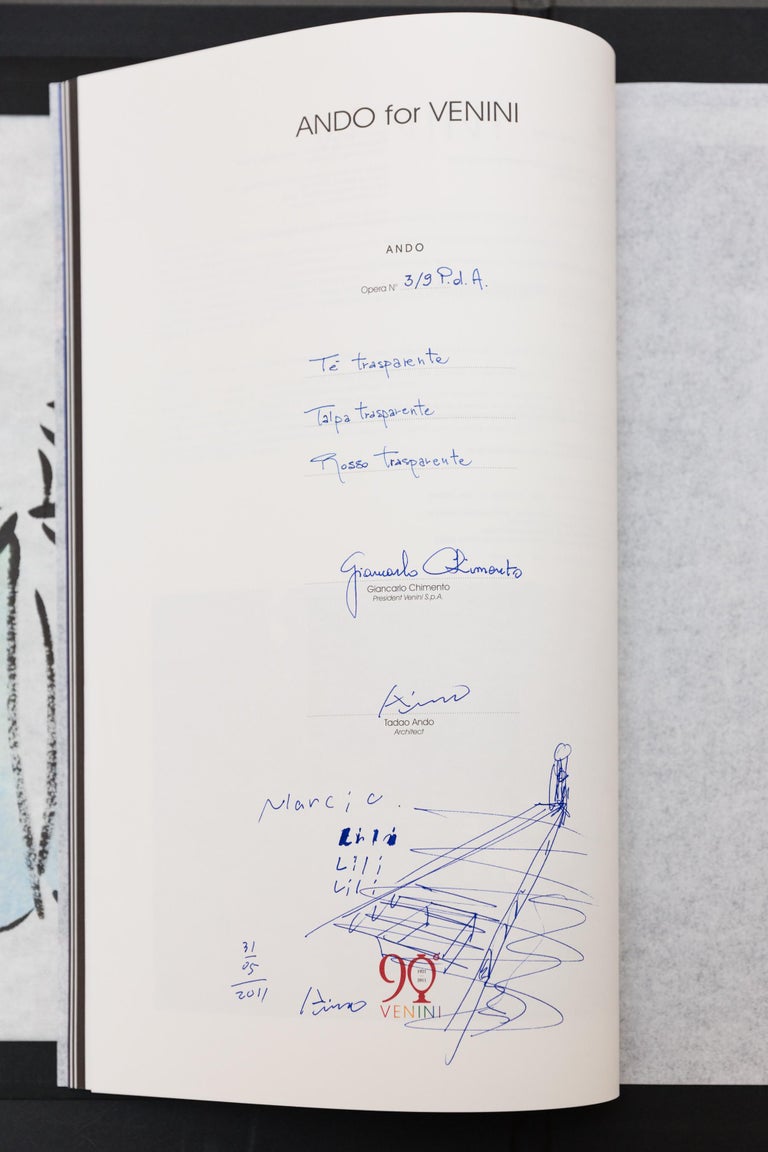 ANDO for VENINI
ANDO
Opera N° 3/9 P.d.A.
Tè trasparente
Talpa trasparente
Rosso trasparente
Giancarlo Chimento
Giancarlo Chimento
President Venini S.p.A.
Tadao Ando
Architect
Marcio.
Lili
Lili
Lili
31
05
2011
90°
1921
2011
VENINI